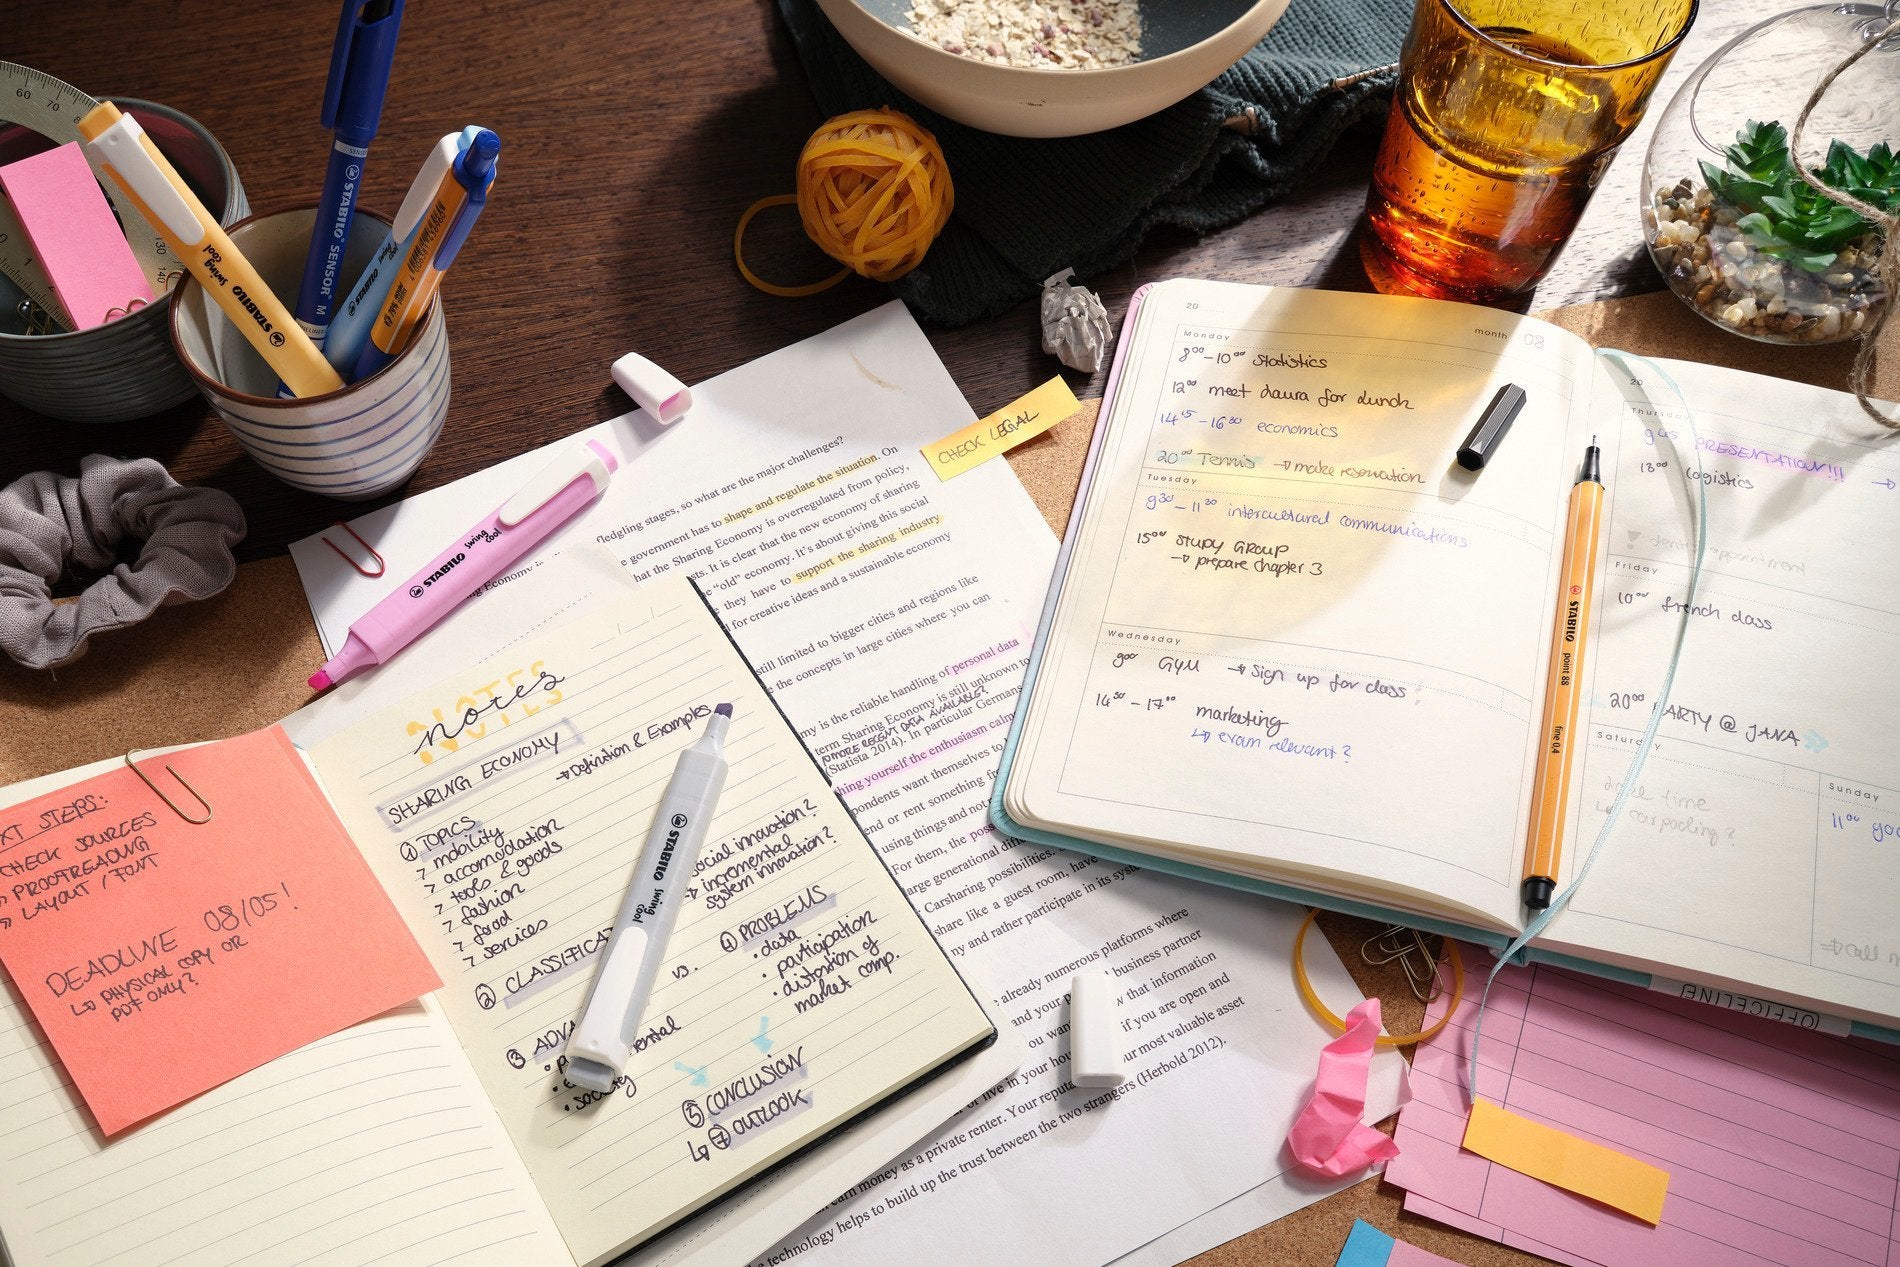 60
70
130
140
STABILO swing cool
STABILO SENSOR M
STABILO swing cool
STABILO swing cool
CHECK LEGAL
fledgling stages, so what are the major challenges?
government has to shape and regulate the situation. On
hat the Sharing Economy is overregulated from policy,
sts. It is clear that the new economy of sharing
"old" economy. It's about giving this social
they have to support the sharing industry
for creative ideas and a sustainable economy
still limited to bigger cities and regions like
the concepts in large cities where you can
my is the reliable handling of personal data
term Sharing Economy is still unknown to
MORE RECENT DATA AVAILABLE?
(Statista 2014). In particular Germans
hing yourself the enthusiasm calms
pondents want themselves to
end or rent something
using things and not
For them, the
large generational
Carsharing possibilities.
share like a guest room, have
ny and rather participate in its
already numerous platforms where
and your business partner
ou wan that information
if you are open and
or live in your hou ur most valuable asset
earn money as a private renter. Your reputa
technology helps to build up the trust between the two strangers (Herbold 2012).
NOTES
notes
SHARING ECONOMY
→ Definition & Examples
① TOPICS
> mobility
> accomodation
> tools & goods
> fashion
> food
> services
social innovation?
→ incremental
system innovation?
② CLASSIFICAT
vs.
④ PROBLEMS
• data
• participation
• distortion of
market comp.
③ ADVA
mental
• society
⑤ CONCLUSION
↳ ⑦ OUTLOOK
STABILO swing cool
XT STEPS:
CHECK SOURCES
» PROOFREADING
» LAYOUT / FONT
DEADLINE 08/05!
↳ PHYSICAL COPY OR
PDF ONLY?
20
month 08
Monday
8⁰⁰ – 10⁰⁰ Statistics
12⁰⁰ meet Laura for lunch
14¹⁵ – 16³⁰ economics
20⁰⁰ Tennis → make reservation
Tuesday
9³⁰ – 11³⁰ intercultured communications
15⁰⁰ STUDY GROUP
→ prepare chapter 3
Wednesday
9⁰⁰ GYM → Sign up for class
14³⁰ – 17⁰⁰ marketing
↳ exam relevant?
STABILO point 88
fine 0,4
20
Thursday
9⁴⁵ PRESENTATION!!!
13⁰⁰ Logistics
Friday
10⁰⁰ french class
20⁰⁰ PARTY @ JANA
Saturday
time
↳ carpooling?
Sunday
11⁰⁰
OFFICELINE